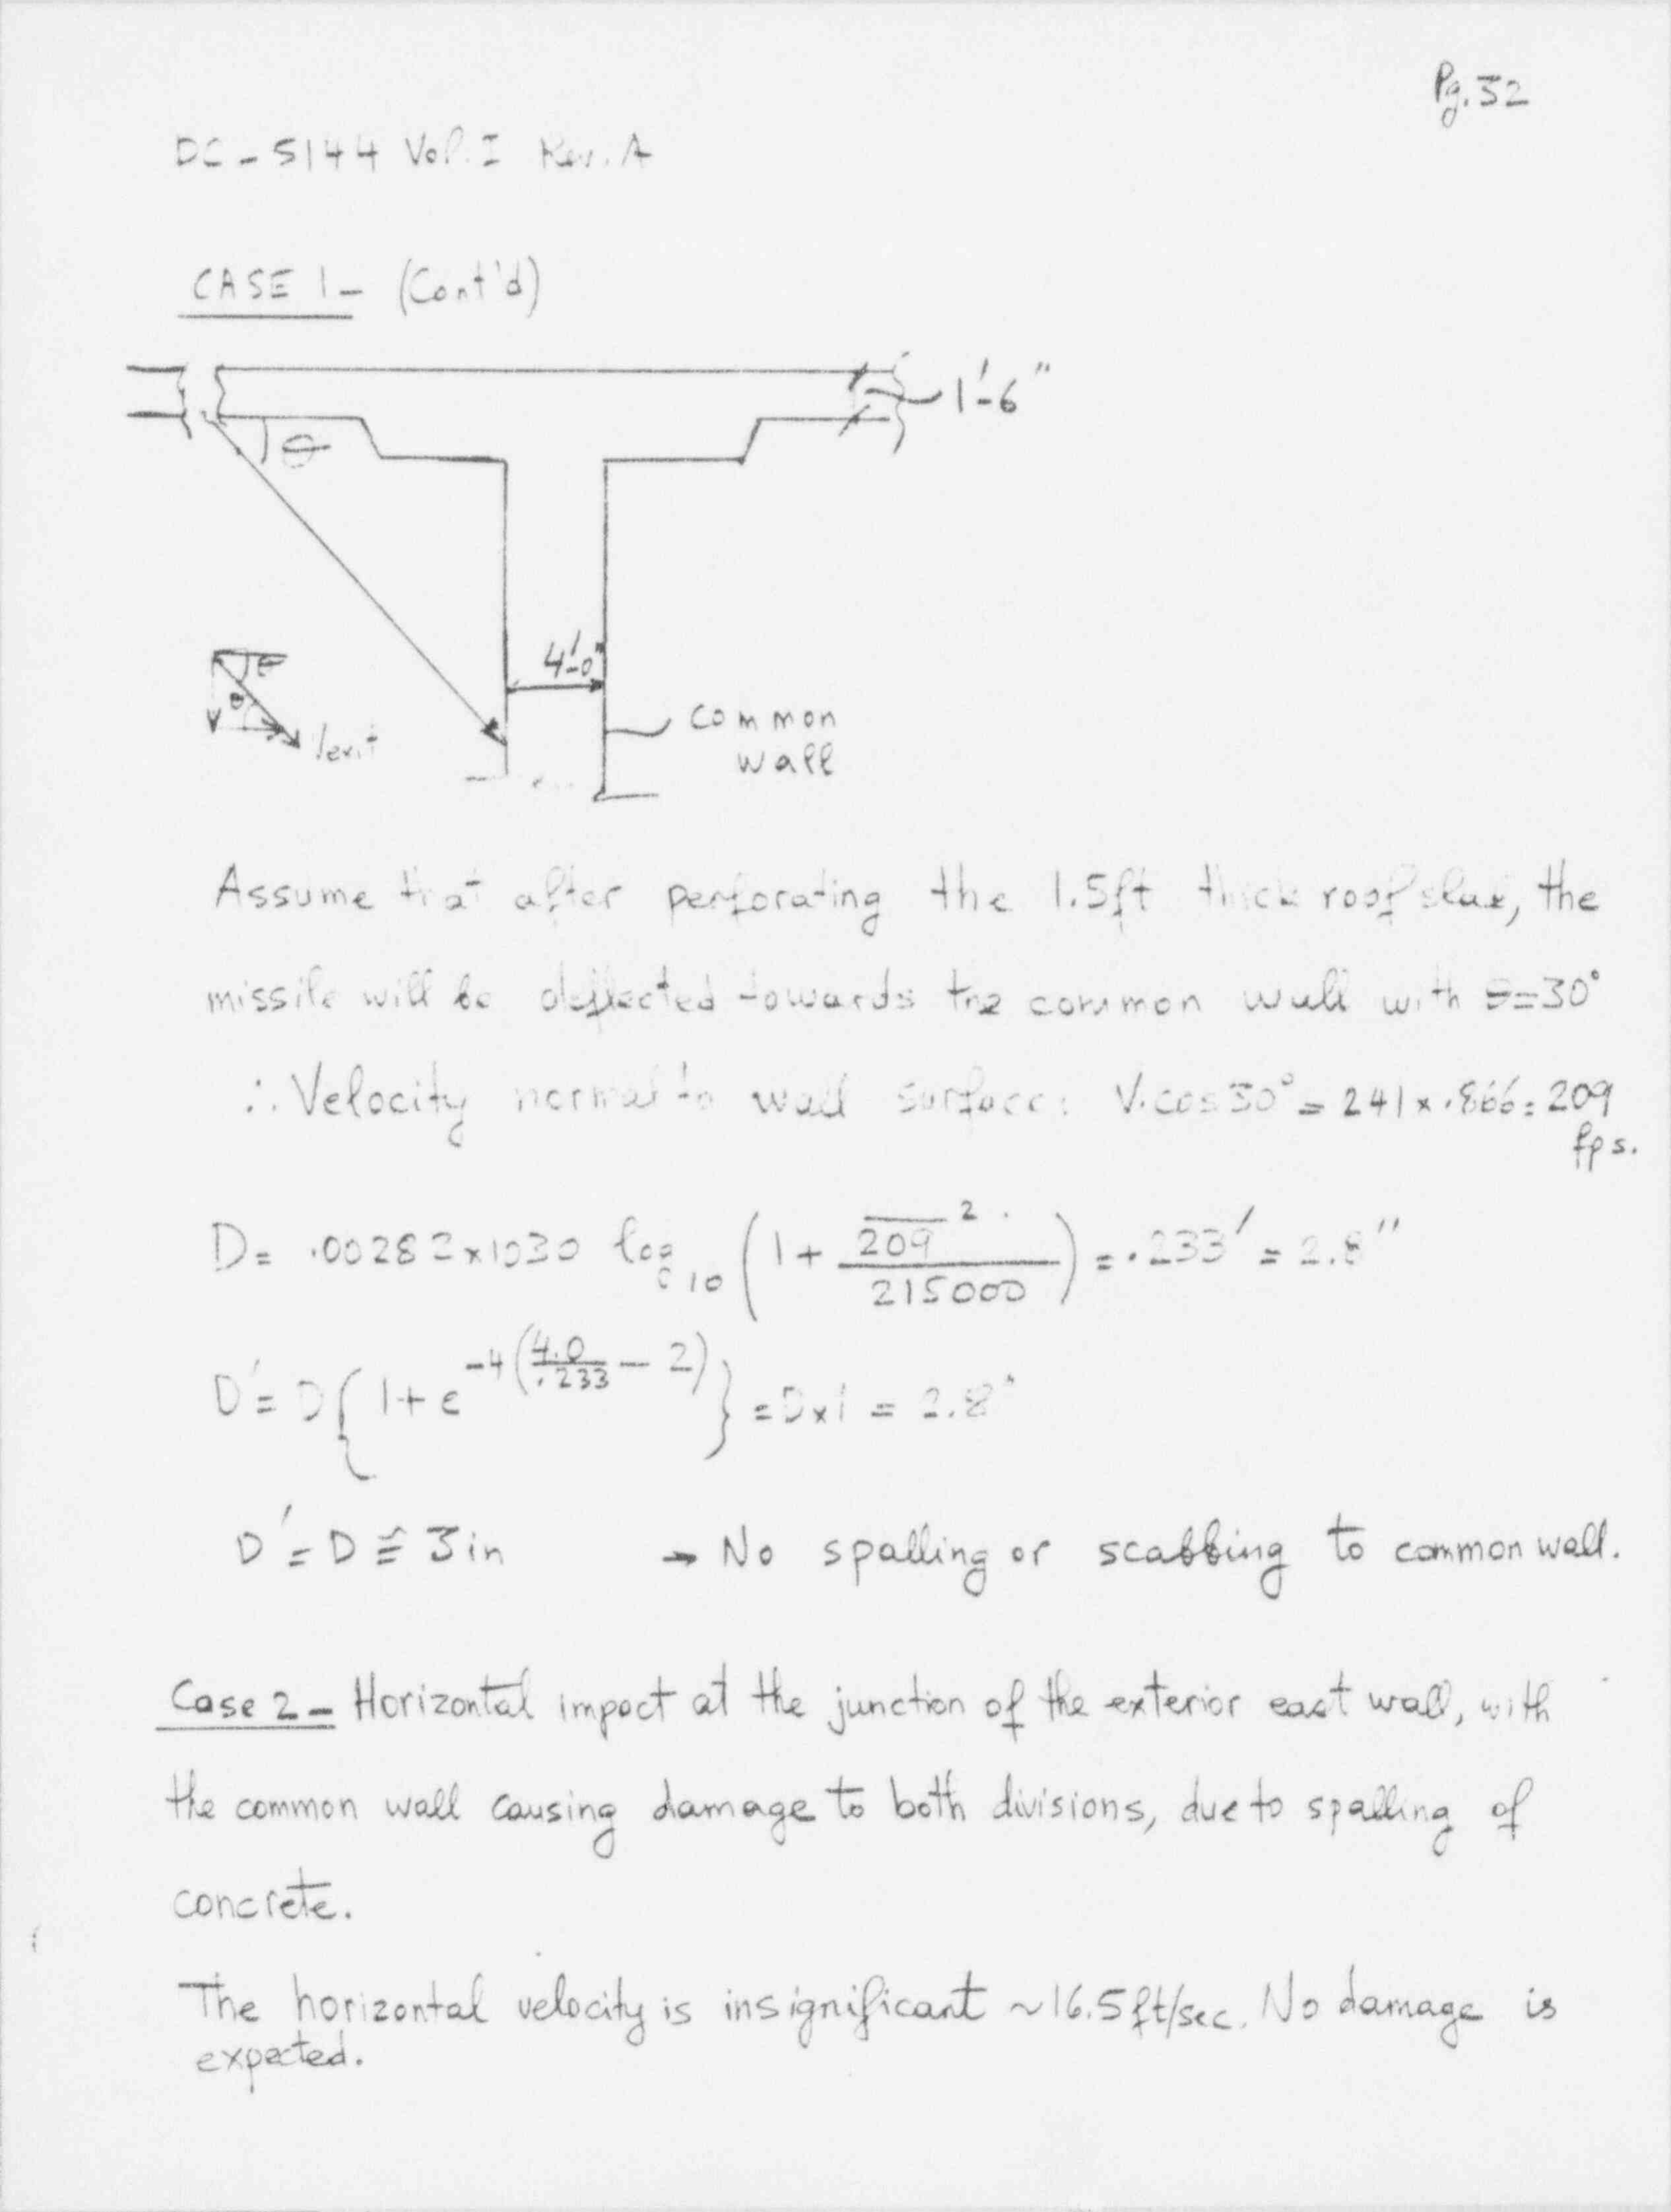 Pg. 32
DC - 5144 Vol. I Rev. A
CASE 1 - (Cont'd)
1'-6"
θ
4'-0"
θ
θ
Vexit
common
wall
Assume that after perforating the 1.5ft thick roof slab, the
missile will be deflected towards the common wall with θ=30°
∴ Velocity normal to wall surface: V.cos30° = 241 x .866 = 209
fps.
D = .00282x1030 log10 (1 + 209²/215000) = .233' = 2.8"
D' = D{1+e^-4(4.0/.233 - 2)} = Dx1 = 2.8"
D' = D ≅ 3in → No spalling or scabbing to common wall.
Case 2 - Horizontal impact at the junction of the exterior east wall, with
the common wall causing damage to both divisions, due to spalling of
concrete.
The horizontal velocity is insignificant ~16.5ft/sec. No damage is
expected.